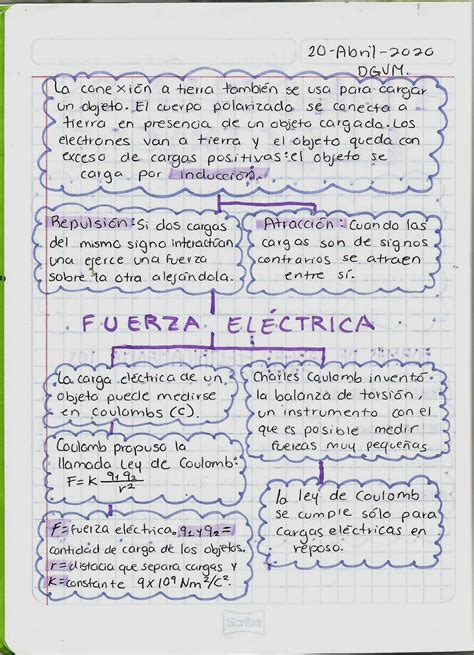 20-Abril-2020
DGVM.
La conexión a tierra también se usa para cargar
un objeto. El cuerpo polarizado se conecta a
tierra en presencia de un objeto cargado. Los
electrones van a tierra y el objeto queda con
exceso de cargas positivas: el objeto se
carga por inducción.
Repulsión: Si dos cargas
del mismo signo interactúan
una ejerce una fuerza
sobre la otra alejándola.
Atracción: Cuando las
cargas son de signos
contrarios se atraen
entre sí.
FUERZA ELÉCTRICA
La carga eléctrica de un
objeto puede medirse
en coulombs (C).
Charles Coulomb inventó
la balanza de torsión,
un instrumento con el
que es posible medir
fuerzas muy pequeñas
Coulomb propuso la
llamada Ley de Coulomb:
F=K q₁q₂/r²
la ley de Coulomb
se cumple sólo para
cargas eléctricas en
reposo.
F=fuerza eléctrica. q₁ y q₂=
cantidad de carga de los objetos.
r=distacia que separa cargas y
K=constante 9x10⁹ Nm²/C².
Scribe